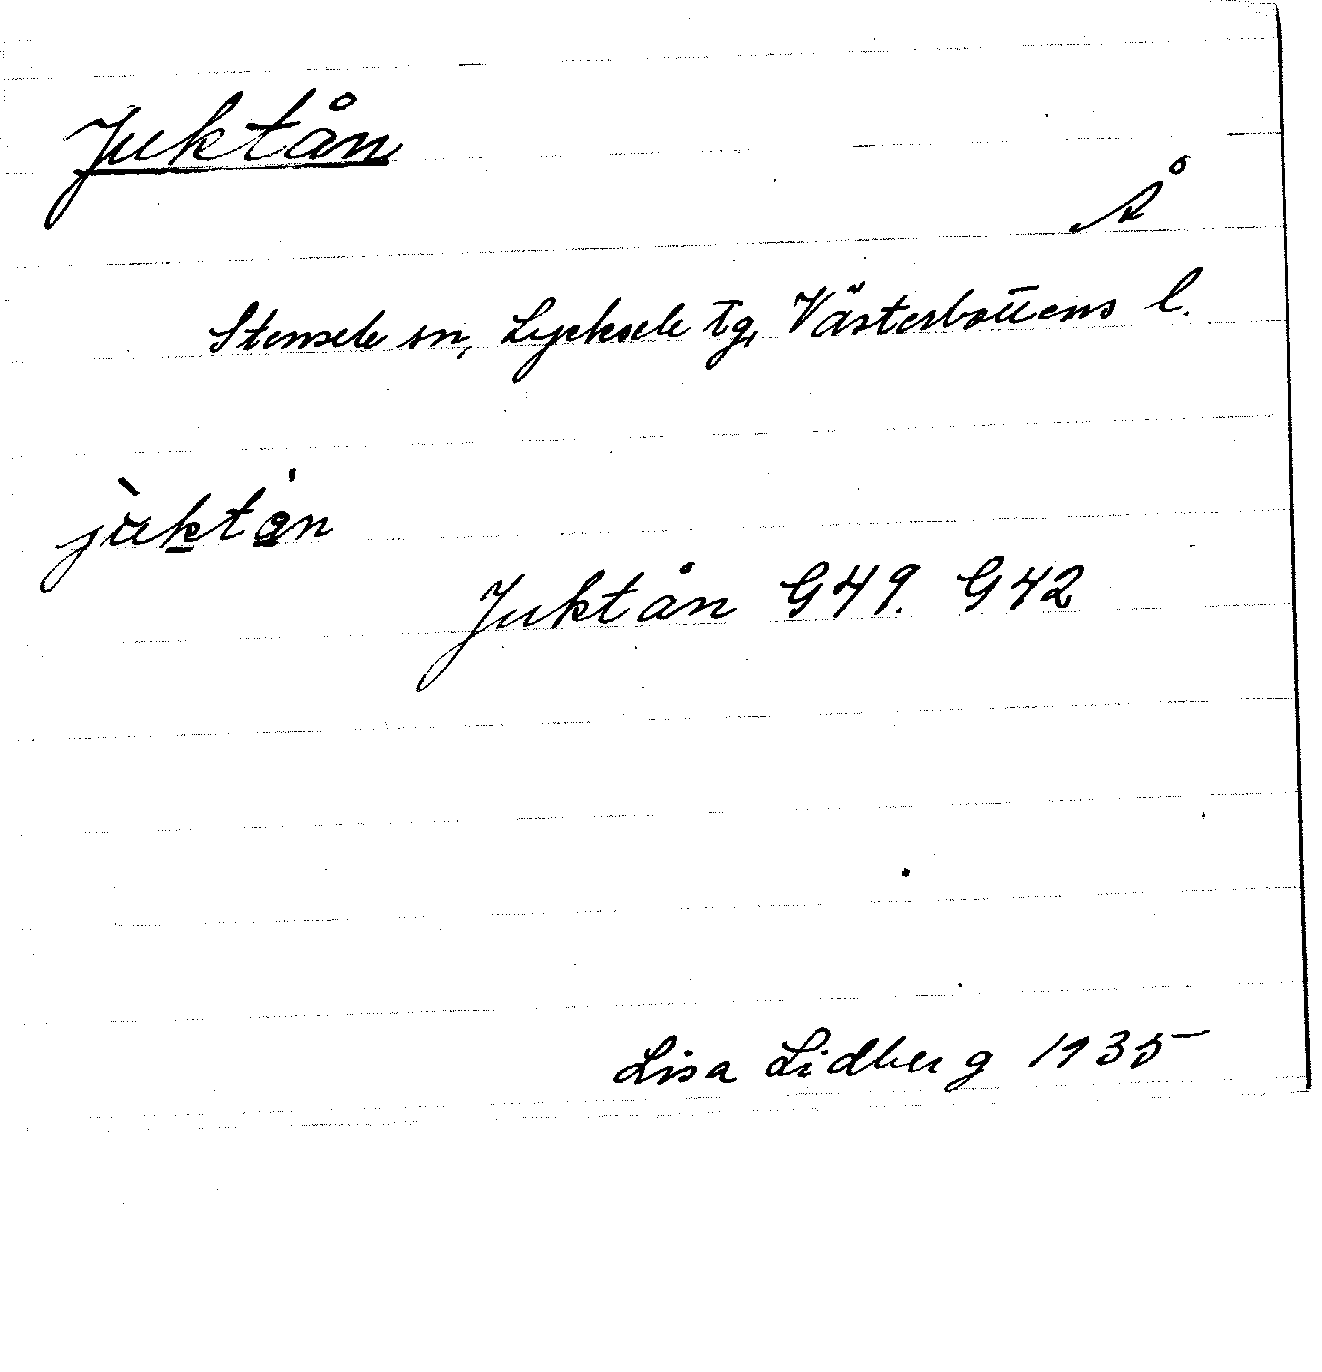 Juktån
Å
Stensele sn, Lycksele tg, Västerbottens l.
jùktán
Juktån G49. G42
Lisa Lidberg 1935